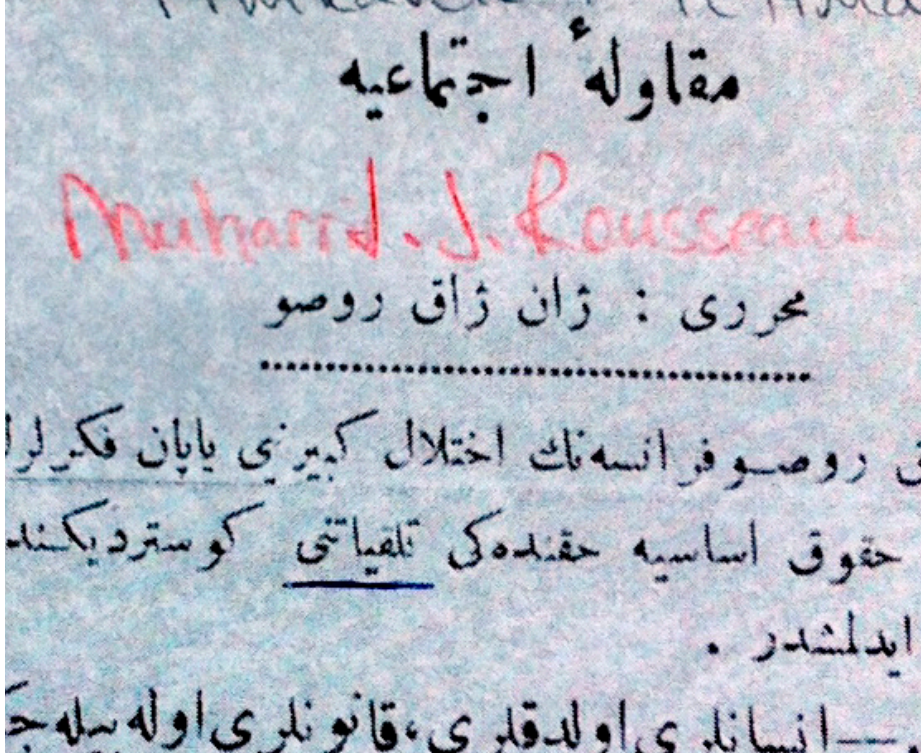 مقاولهٔ اجتماعیه
Muharrid. J. Rousseau
محرری : ژان ژاق روصو
روصو فرانسه‌نك اختلال كبیرینی یاپان فكرلرك
حقوق اساسیه حقنده‌كی تلقیاتنی كوستردیكند
ایدلمشدر .
— انسانلری اولدقلری، قانونلری اوله بیله‌جك